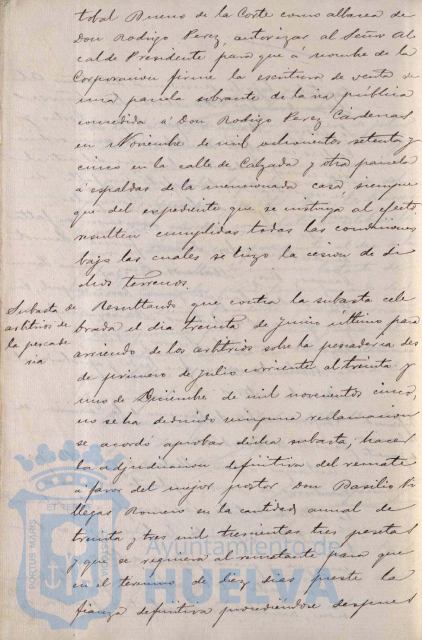 tobal Bueno de la Corte como albacea de
Don Rodrigo Perez, autorizar al Señor Al
calde Presidente para que á nombre de la
Corporacion firme la escritura de venta de
una parcela sobrante de la via pública
concedida á Don Rodrigo Perez Cárdenas
en Noviembre de mil ochocientos setenta y
cinco en la calle de Calzada y otra parcela
á espaldas de la mencionada casa, siempre
que del espediente que se instruya al efecto
resulten cumplidas todas las condiciones
bajo las cuales se hizo la cesion de di
chos terrenos.
Subasta de
arbitrios de
la pescade
ria
Resultando que contra la subasta cele
brada el dia treinta de Junio último para
arriendo de los arbitrios sobre la pescaderia des
de primero de Julio corriente al treinta y
uno de Diciembre de mil novecientos cinco,
no se ha deducido ninguna reclamacion
se acordó aprobar dicha subasta, hacer
la adjudicacion definitiva del remate
á favor del mejor postor Don Basilio Vi
llegas Romero en la cantidad anual de
treinta y tres mil trescientas tres pesetas
y que se requiera al rematante para que
en el termino de diez dias preste la
fianza definitiva procediéndose despues
PORTUS MARIS
Ayuntamiento de
HUELVA